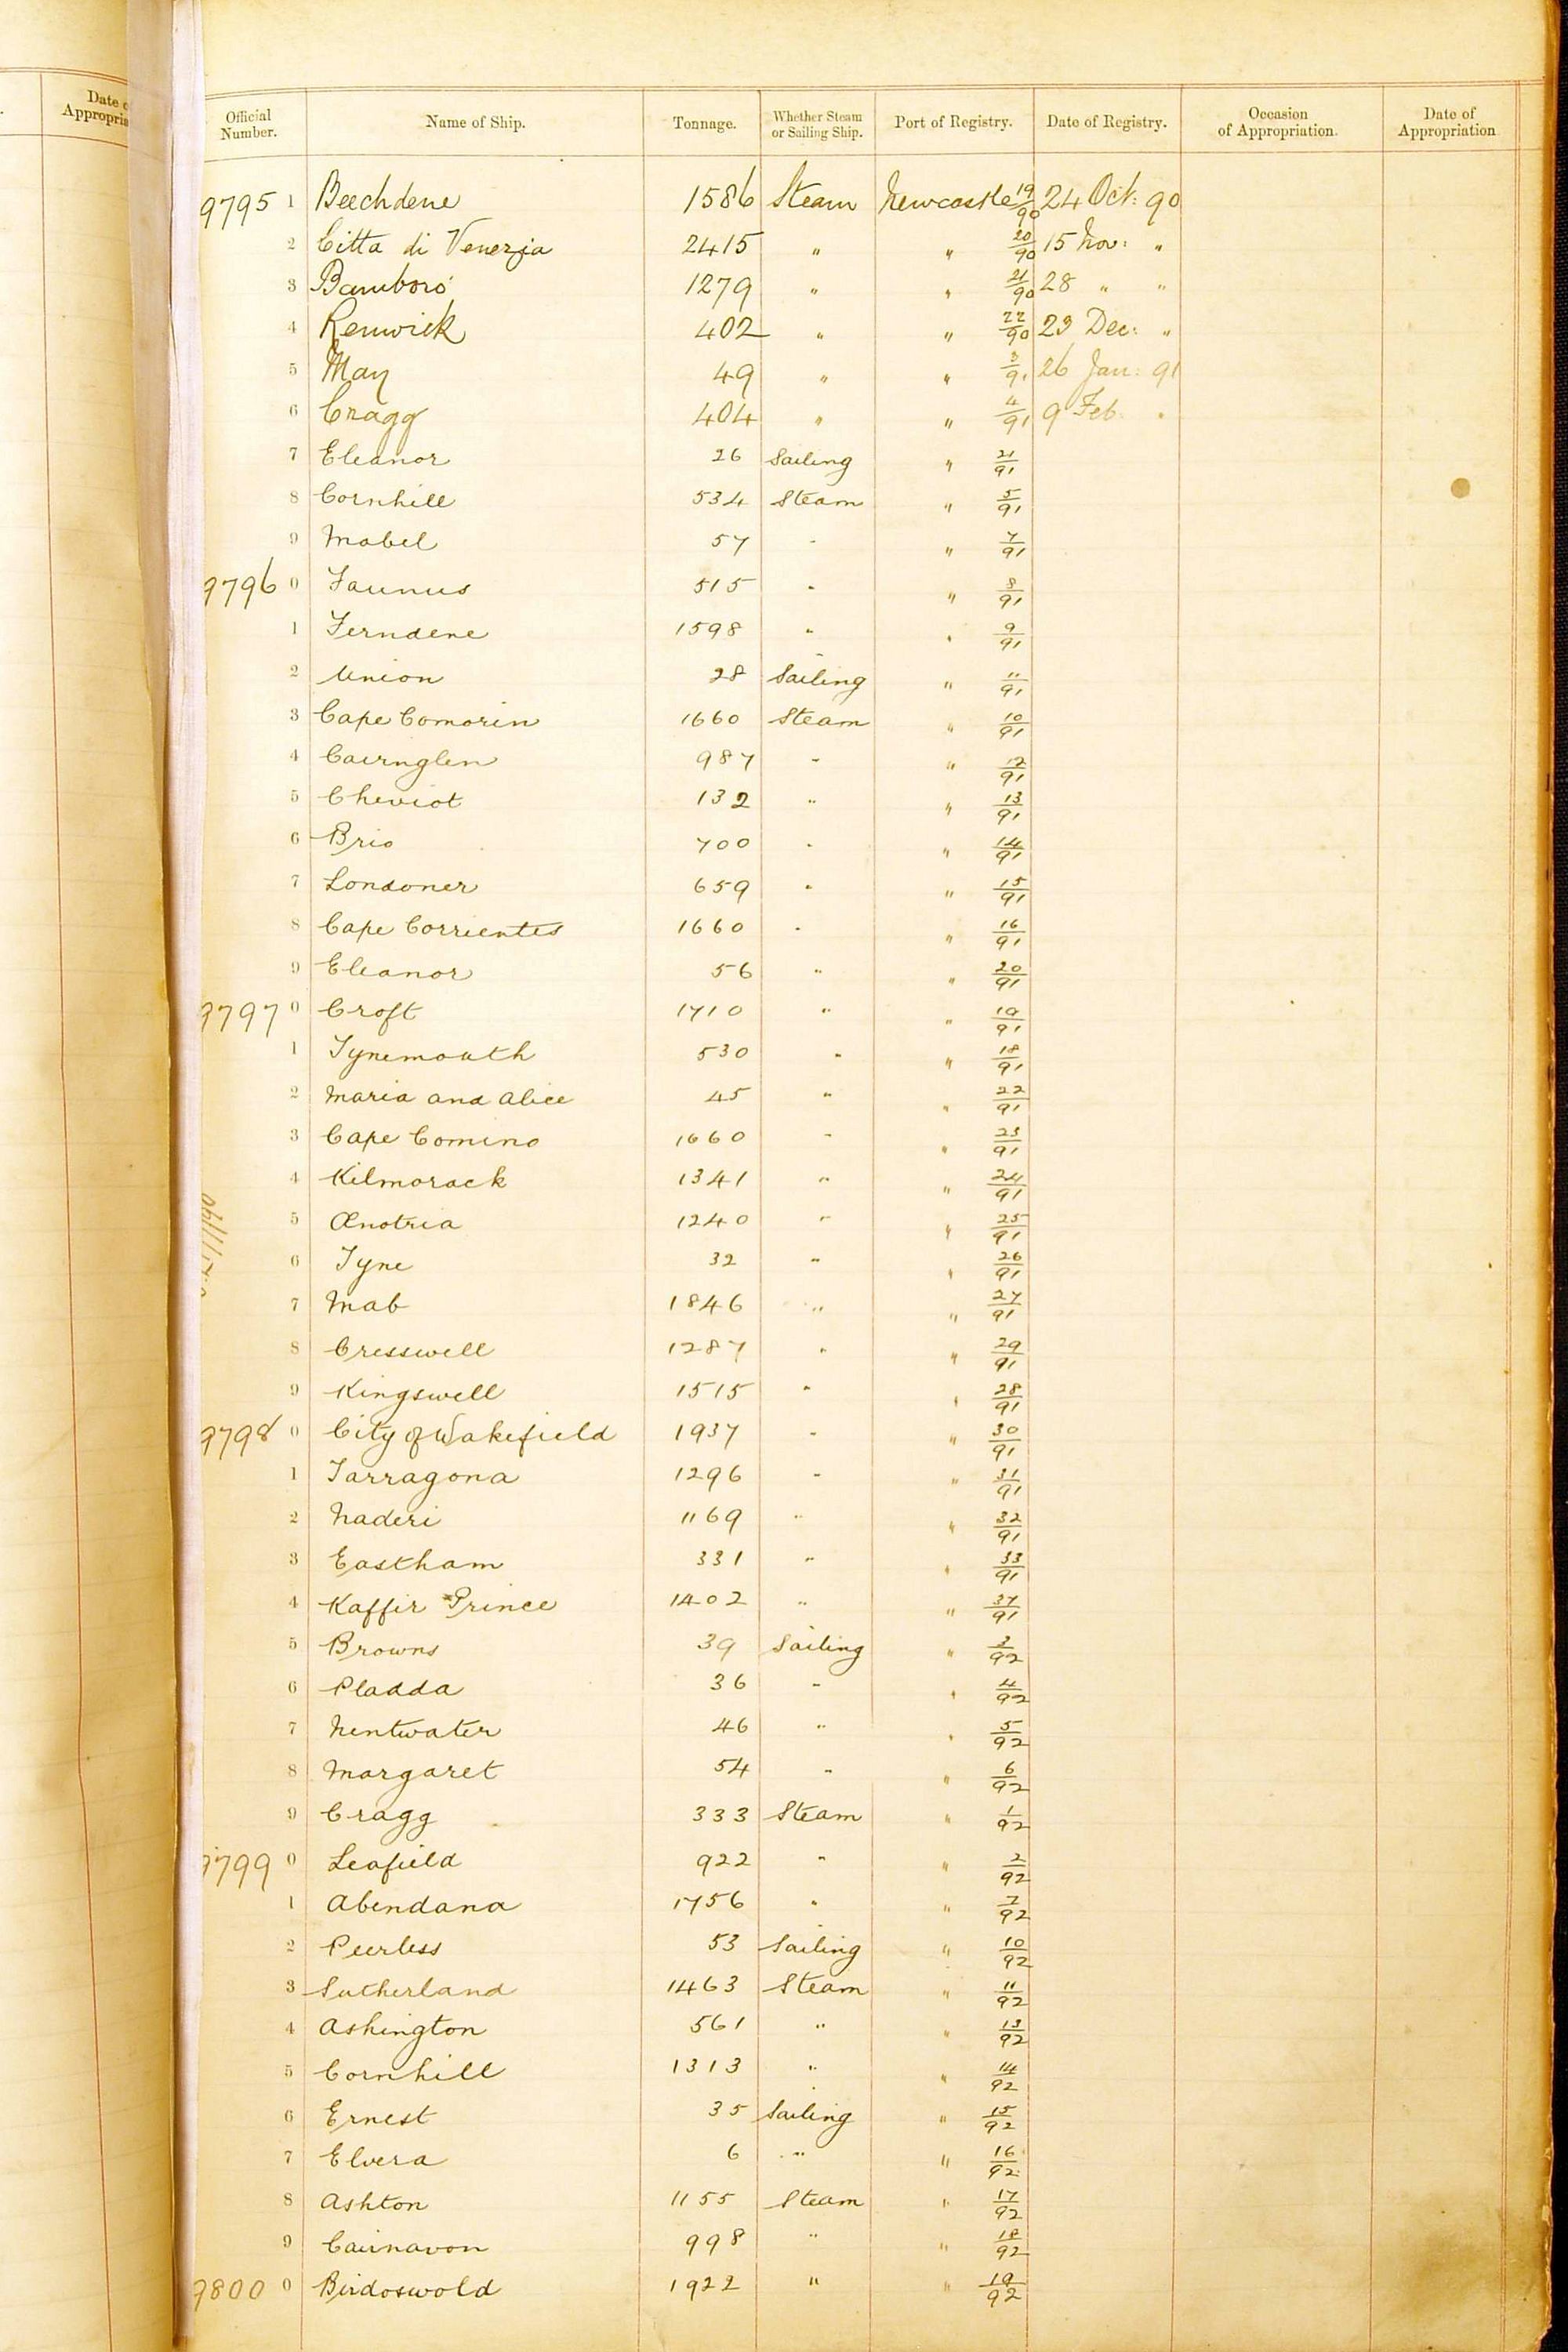 Date o
Appropria
Official Number. Name of Ship. Tonnage. Whether Steam or Sailing Ship. Port of Registry. Date of Registry. Occasion of Appropriation. Date of Appropriation.
9795 1 Beechdene 1586 Steam Newcastle 19/90 24 Oct: 90
2 Citta di Venezia 2415 " " 20/90 15 Nov: "
3 Bamboro' 1279 " " 21/90 28 " "
4 Renwick 402 " " 22/90 23 Dec: "
5 May 49 " " 3/91 26 Jan: 91
6 Cragg 404 " " 4/91 9 Feb: "
7 Eleanor 26 Sailing " 21/91
8 Cornhill 534 Steam " 5/91
9 Mabel 57 " " 7/91
9796 0 Faunus 515 " " 8/91
1 Ferndene 1598 " " 9/91
2 Union 28 Sailing " 11/91
3 Cape Comorin 1660 Steam " 10/91
4 Cairnglen 987 " " 12/91
5 Cheviot 132 " " 13/91
6 Brio 700 " " 14/91
7 Londoner 659 " " 15/91
8 Cape Corrientes 1660 " " 16/91
9 Eleanor 56 " " 20/91
9797 0 Croft 1710 " " 19/91
1 Tynemouth 530 " " 18/91
2 Maria and Alice 45 " " 22/91
3 Cape Comino 1660 " " 23/91
4 Kilmorack 1341 " " 24/91
5 Œnotria 1240 " " 25/91
6 Tyne 32 " " 26/91
7 Mab 1846 " " 27/91
8 Cresswell 1287 " " 29/91
9 Kingswell 1515 " " 28/91
9798 0 City of Wakefield 1937 " " 30/91
1 Tarragona 1296 " " 31/91
2 Naderi 1169 " " 32/91
3 Eastham 331 " " 33/91
4 Kaffir Prince 1402 " " 37/91
5 Browns 39 Sailing " 3/92
6 Pladda 36 " " 4/92
7 Nentwater 46 " " 5/92
8 Margaret 54 " " 6/92
9 Cragg 333 Steam " 1/92
9799 0 Leafield 922 " " 2/92
1 Abendana 1756 " " 7/92
2 Peerless 53 Sailing " 10/92
3 Sutherland 1463 Steam " 11/92
4 Ashington 561 " " 13/92
5 Cornhill 1313 " " 14/92
6 Ernest 35 Sailing " 15/92
7 Elvera 6 " " 16/92
8 Ashton 1155 Steam " 17/92
9 Cairnavon 998 " " 18/92
9800 0 Birdoswold 1922 " " 19/92